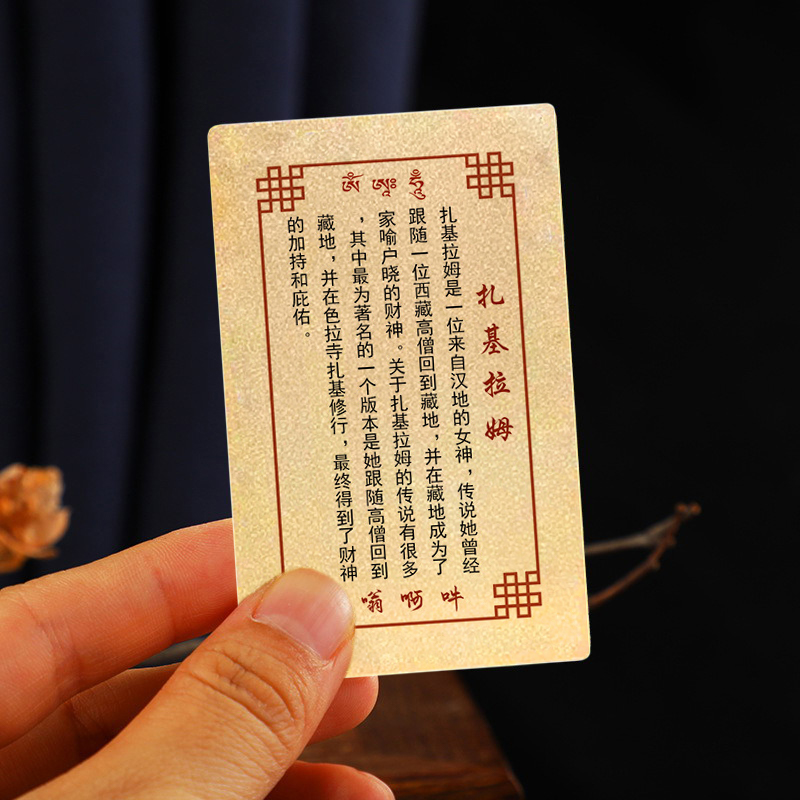 ༀ ཨཱཿ ཧཱུྃ
扎基拉姆
扎基拉姆是一位来自汉地的女神，传说她曾经
跟随一位西藏高僧回到藏地，并在藏地成为了
家喻户晓的财神。关于扎基拉姆的传说有很多
，其中最为著名的一个版本是她跟随高僧回到
藏地，并在色拉寺扎基修行，最终得到了财神
的加持和庇佑。
嗡啊吽